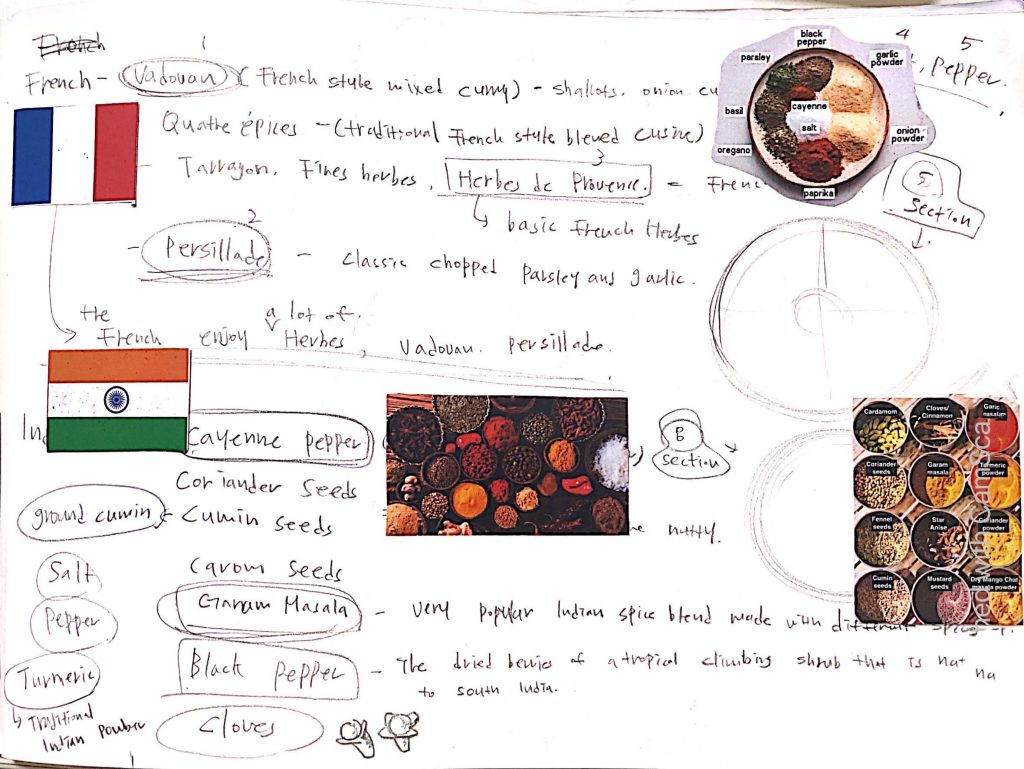 French
1
French - Vadouan (French style mixed curry) - shallots, onion cu
4 5
, pepper.
Quatre épices - (traditional French style blewed cusine)
3
- Tarragon, Fines herbes, Herbes de Provence. = Fren
↳ basic French Herbes
2
- Persillade - classic chopped parsley and garlic.
the French enjoy a lot of Herbes, Vadouan. persillade.
black pepper
garlic powder
parsley
cayenne
basil
salt
oregano
onion powder
paprika
5 section
In
Cayenne pepper
B section
Coriander Seeds
ground cumin - Cumin seeds
nutty.
Salt
Carom Seeds
Pepper
Garam Masala - very popular Indian spice blend made with different
Turmeric
↳ Traditional Indian Powder
Black pepper - The dried berries of a tropical climbing shrub that is nat na
to south India.
Cloves
Cardamom
Cloves/ Cinnamon
Coriander seeds
Garam masala
Turmeric powder
Fennel seeds
Star Anise
Coriander powder
Cumin seeds
Mustard seeds
Dry Mango Chat masala powder